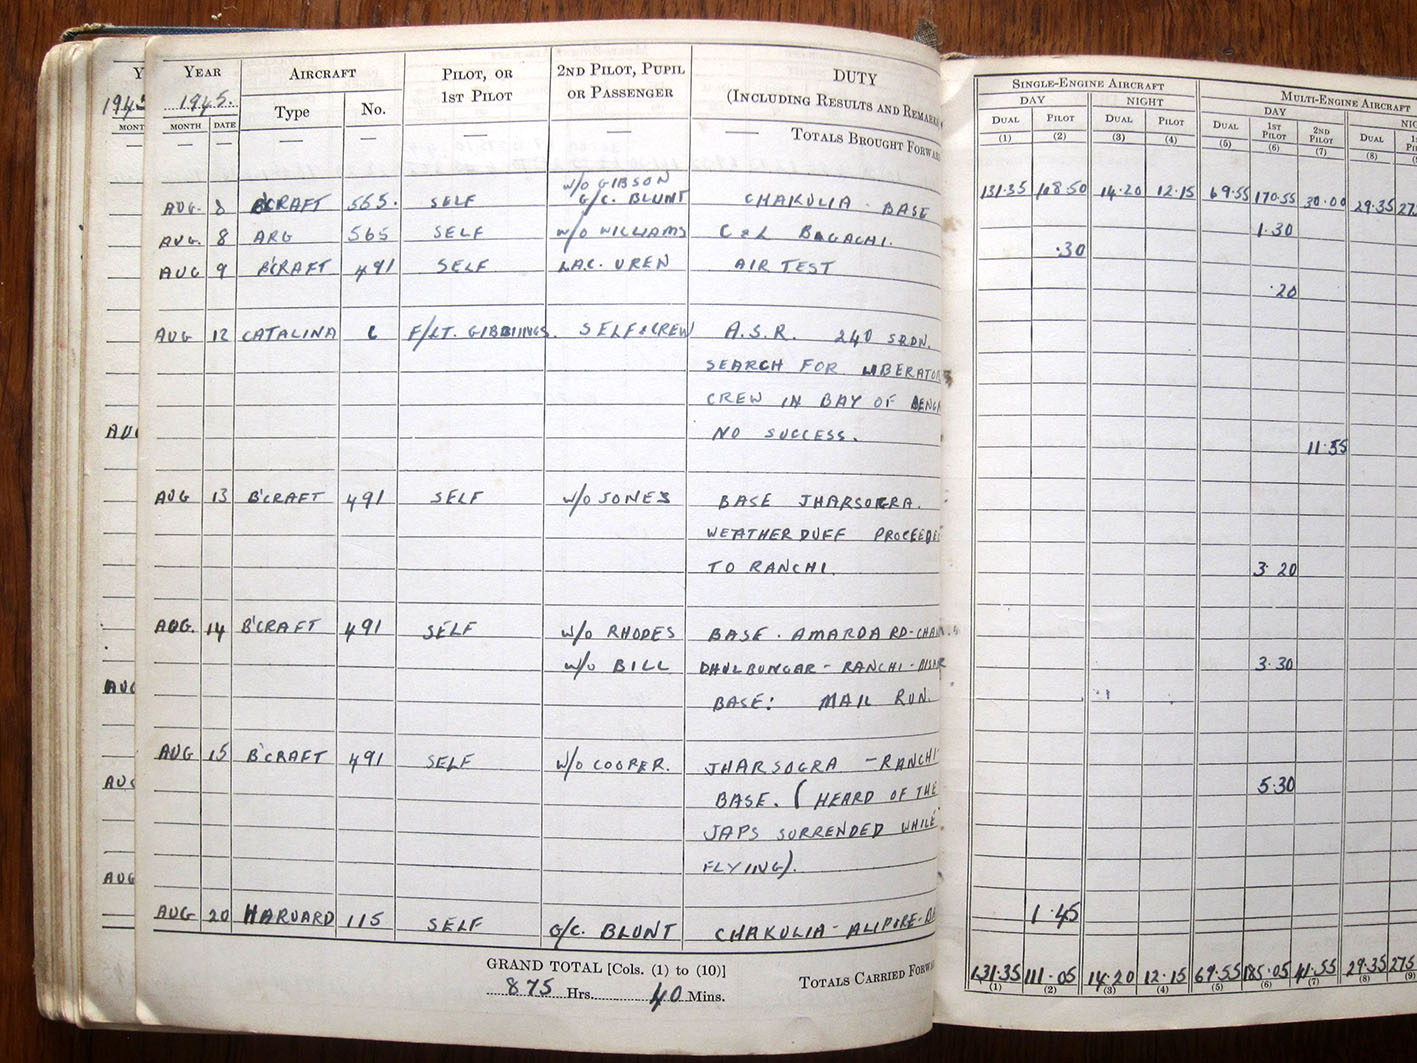 YEAR AIRCRAFT PILOT, OR 1ST PILOT 2ND PILOT, PUPIL OR PASSENGER DUTY (INCLUDING RESULTS AND REMARKS
1945. Type No.
MONTH DATE
— — — — — — —
TOTALS BROUGHT FORWARD
W/O GIBSON
AUG. 8 B'CRAFT 565. SELF G/C. BLUNT CHAKULIA - BASE
AUG. 8 ARG 565 SELF W/O WILLIAMS C & L BAGACHI.
AUG 9 B'CRAFT 491 SELF L.A.C. UREN AIR TEST
AUG 12 CATALINA F/LT. GIBBINGS. SELF & CREW A.S.R. 240 SQDN.
SEARCH FOR LIBERATOR
CREW IN BAY OF BENGA
NO SUCCESS.
AUG 13 B'CRAFT 491 SELF W/O JONES BASE JHARSOGRA.
WEATHER DUFF PROCEEDED
TO RANCHI.
AUG. 14 B'CRAFT 491 SELF W/O RHODES BASE - AMARDA RD - CHAK
W/O BILL DHULBUMGAR - RANCHI -
BASE: MAIL RUN.
AUG 15 B'CRAFT 491 SELF W/O COOPER. JHARSOGRA - RANCHI
BASE. (HEARD OF THE
JAPS SURRENDED WHILE
FLYING).
AUG 20 HARVARD 115 SELF G/C. BLUNT CHAKULIA - ALIPORE - BA
GRAND TOTAL [Cols. (1) to (10)]
875 Hrs. 40 Mins.
TOTALS CARRIED FORWA
Y
1945
MONT
—
AUG
AUG
AUG
AUG
SINGLE-ENGINE AIRCRAFT MULTI-ENGINE AIRCRAFT
DAY NIGHT DAY NIG
DUAL PILOT DUAL PILOT DUAL 1ST PILOT 2ND PILOT DUAL
(1) (2) (3) (4) (5) (6) (7) (8)
131.35 108.50 14.20 12.15 69.55 170.55 30.00 29.35 27
1.30
.30
.20
11.55
3.20
3.30
5.30
1.45
131.35 111.05 14.20 12.15 69.55 185.05 41.55 29.35 275
(1) (2) (3) (4) (5) (6) (7) (8) (9)